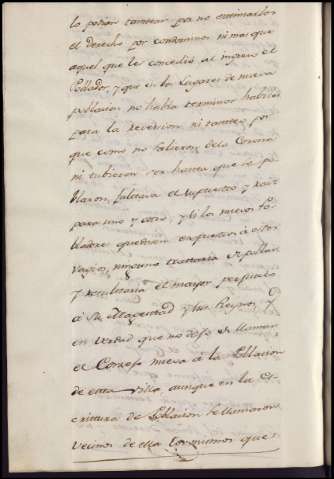 lo podian tantear por no estimarlos
el derecho por comunnes, ni mas que
aquel que les concedió al ingreso el
Poblador, y que en los Lugares de nueva
poblacion no habia terminos habiles
para la reversion, ni tanteo, por
que como no salieron de la Corona
ni tubieron ser hasta que se po
blaron, faltava el supuesto y raiz
para uno y otro, y si los nuevos Po
bladores quedasen expuestos à estos
vayvenes, ninguno trattaria de poblar
y resultaria el mayor perjuicio
à Su Magestad y sus Reynos, y
en verdad que no dejó de llamar
el Consejo nueva à la Poblacion
de esta villa, aunque en la Es
crittura de Poblacion se llamaron
vecinos de ella los mismos que